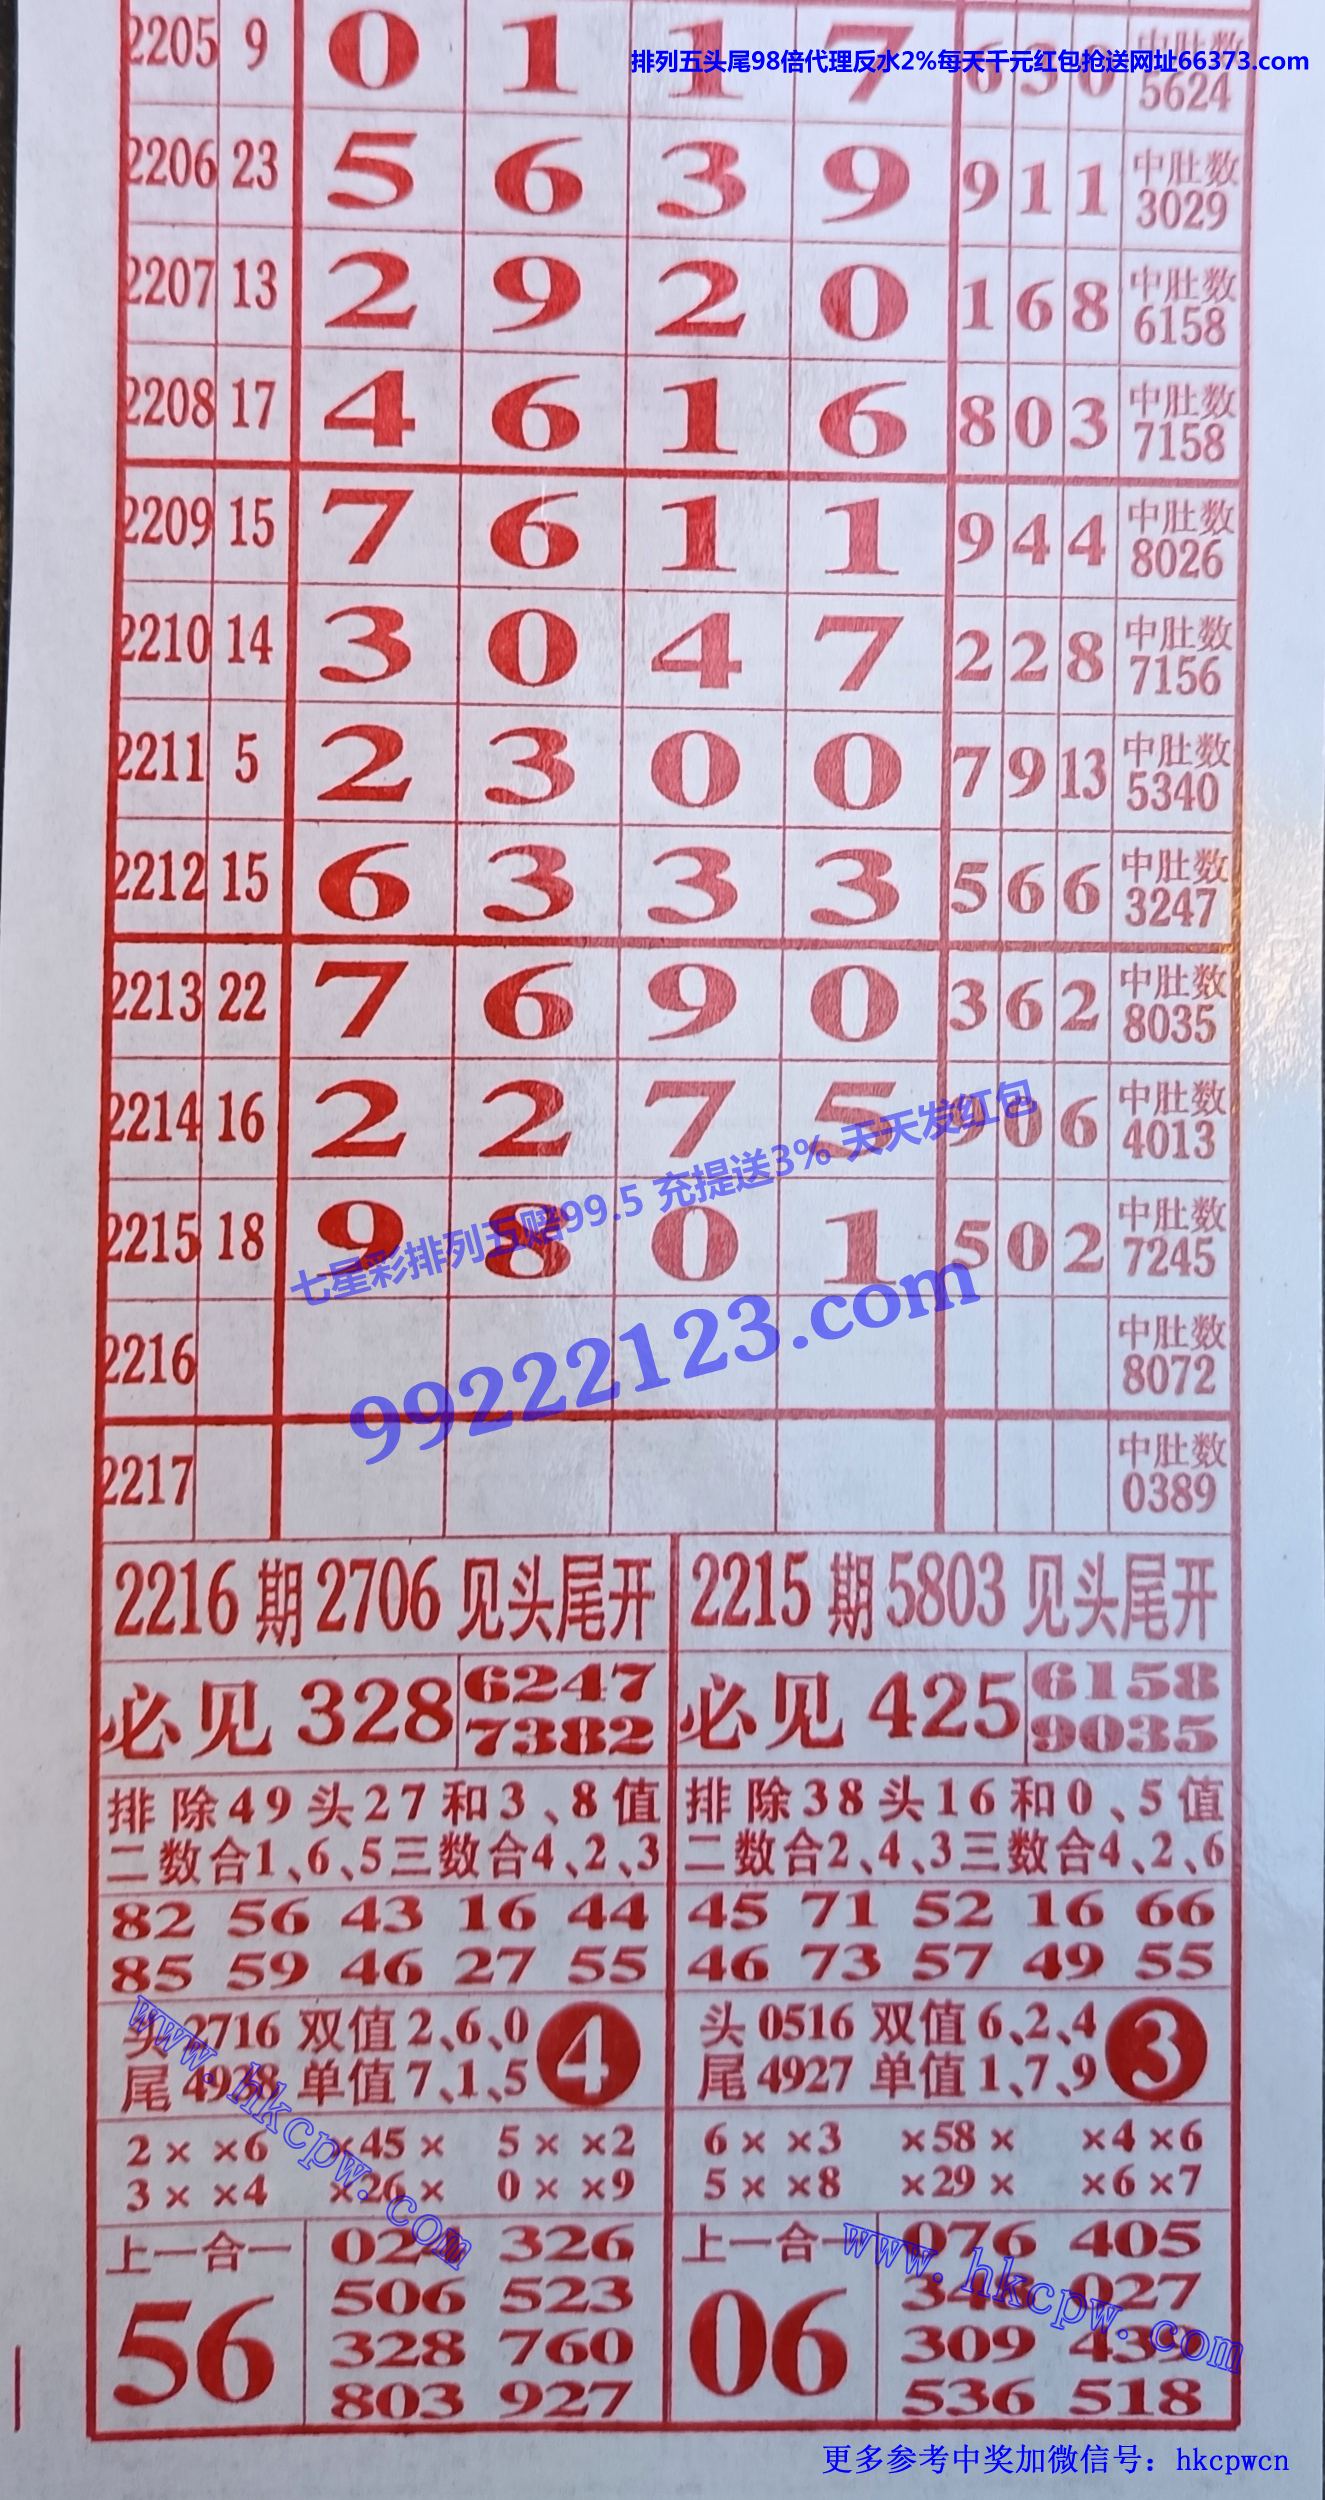 排列五头尾98倍代理反水2%每天千元红包抢送网址66373.com
2205 9 0 1 1 7 6 3 0 中肚数 5624
2206 23 5 6 3 9 9 1 1 中肚数 3029
2207 13 2 9 2 0 1 6 8 中肚数 6158
2208 17 4 6 1 6 8 0 3 中肚数 7158
2209 15 7 6 1 1 9 4 4 中肚数 8026
2210 14 3 0 4 7 2 2 8 中肚数 7156
2211 5 2 3 0 0 7 9 13 中肚数 5340
2212 15 6 3 3 3 5 6 6 中肚数 3247
2213 22 7 6 9 0 3 6 2 中肚数 8035
2214 16 2 2 7 5 9 0 6 中肚数 4013
七星彩排列五赔99.5 充提送3% 天天发红包
2215 18 9 8 0 1 5 0 2 中肚数 7245
99222123.com
2216 中肚数 8072
2217 中肚数 0389
2216期2706见头尾开
必见328 6247
7382
排除49头27和3、8值
二数合1、6、5三数合4、2、3
82 56 43 16 44
85 59 46 27 55
头2716 双值2、6、0 4
尾4938 单值7、1、5
2×  ×6  ×45×  5×  ×2
3×  ×4  ×26×  0×  ×9
上一合一
56
326
506 523
328 760
803 927
2215期5803见头尾开
必见425 6158
9035
排除38头16和0、5值
二数合2、4、3三数合4、2、6
45 71 52 16 66
46 73 57 49 55
头0516 双值6、2、4 3
尾4927 单值1、7、9
6×  ×3  ×58×  ×4×6
5×  ×8  ×29×  ×6×7
上一合一
06
076 405
348 027
309 439
536 518
www.hkcpw.com
www.hkcpw.com
更多参考中奖加微信号：hkcpwcn